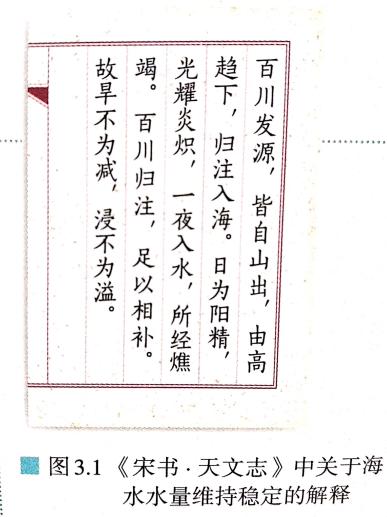 百川发源，皆自山出，由高
趋下，归注入海。日为阳精，
光耀炎炽，一夜入水，所经燋
竭。百川归注，足以相补。
故旱不为减，浸不为溢。
图3.1《宋书·天文志》中关于海
水水量维持稳定的解释